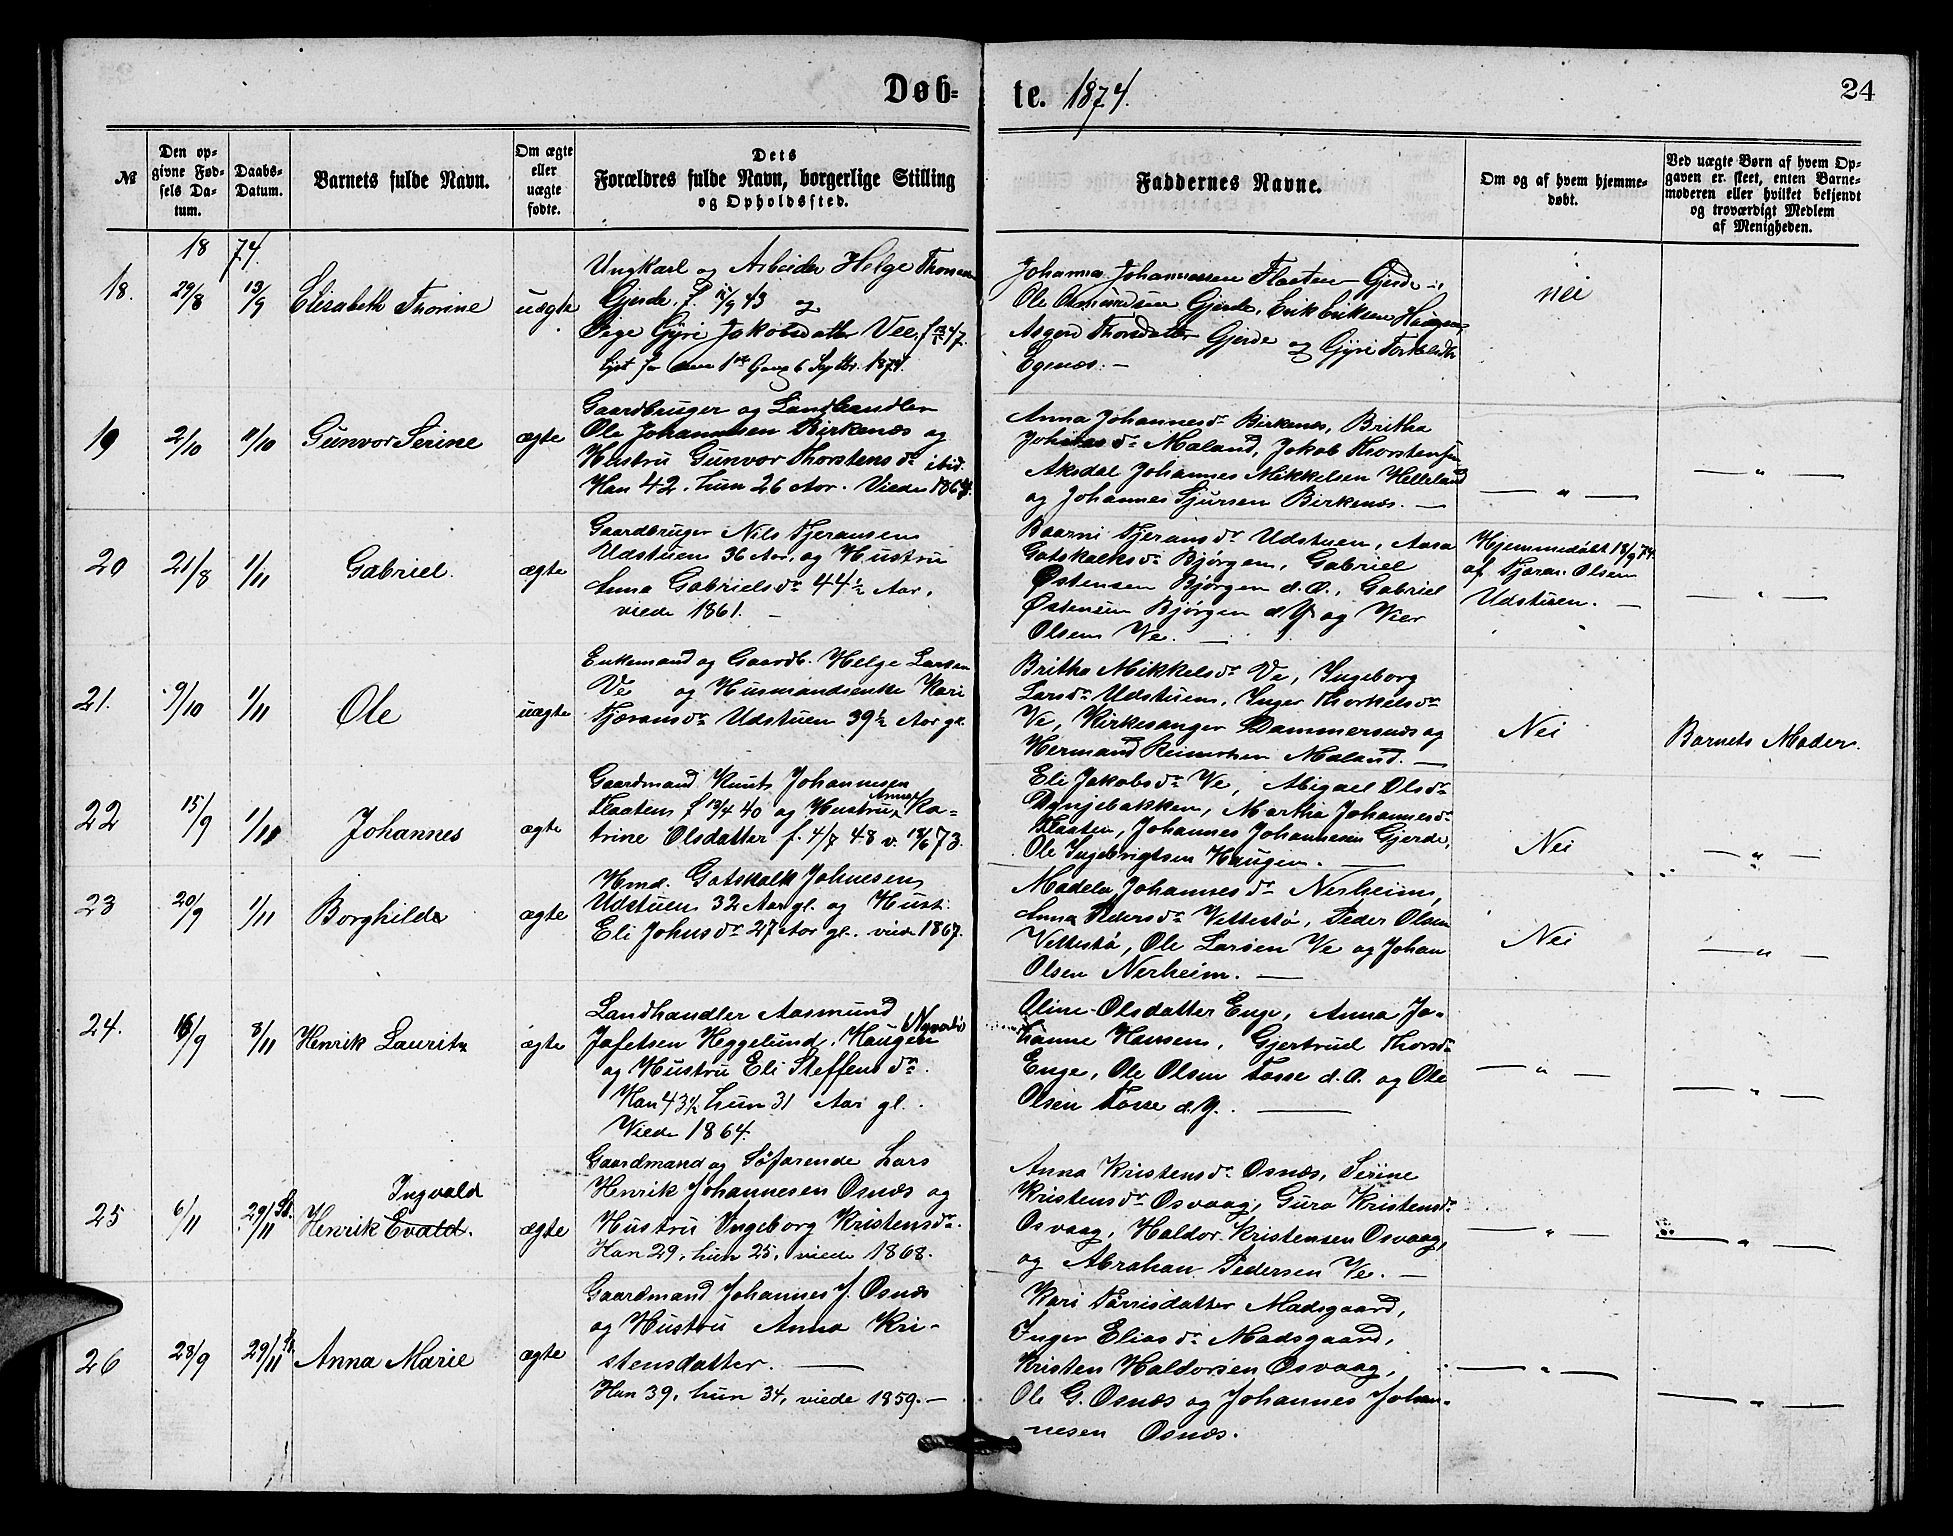 Døb-
te. 1874.
24
№
Den op-
givne Fød-
sels Da-
tum.
Daabs-
Datum.
Barnets fulde Navn.
Om ægte
eller
uægte
fødte.
Dets
Forældres fulde Navn, borgerlige Stilling
og Opholdssted.
Faddernes Navne.
Om og af hvem hjemme-
døbt.
Ved uægte Børn af hvem Op-
gaven er skeet, enten Barne-
moderen eller hvilket bekjendt
og troværdigt Medlem
af Menigheden.
1874.
18. 29/8 13/9 Elisabeth Thorine uægte
Ungkarl og Arbeider Helge
Gjerde, f. 43 og
Pige Gyri Jakobsdatter Vee, f. 47.
lyst for 1ste Gang 6 Septbr. 1874.
Johannes Johannessen Flaaten Gjerde,
Ole Gjerde, Erik Eriksen Haugen,
Asgerd Thorsdatter Gjerde og Gyri
Egenæs. —
nei
19 2/10 11/10 Gunvor Serine ægte
Gaardbruger og Landhandler
Ole Johannesen Birkenæs og
Hustru Gunvor Thorstensdr ibid.
Han 42, hun 26 Aar. Viede 1868.
Anna Johannesdr Birkenæs, Britha
Maland, Jakob Thorstensen
Aksdal, Johannes Mikkelsen Helleland
og Johannes Sjursen Birkenæs. —
— " —
— " —
20 21/8 1/11 Gabriel. ægte
Gaardbruger Nils Tjeransen
Udstuen 36 Aar, og Hustru
Anna Gabrielsdr 44½ Aar,
viede 1861. —
Baarni Tjeransdr Udstuen, Aasa
Gotskalksdr Bjørgen, Gabriel
Østensen Bjørgen d. Æ., Gabriel
Østensen Bjørgen d. Y. og Vier
Olsen Ve. —
Hjemmedøbt 18/9 74.
af Tjeran Olsen
Udstuen. —
— " —
21. 9/10 1/11 Ole uægte
Enkemand og Gaardb. Helge Larsen
Ve og Husmandsenke Kari
Tjæransdr Udstuen 39½ Aar gl.
Britha Mikkelsdr Ve, Ingeborg
Larsdr Udstuen, Inger Thorkelsdr
Ve, Kirkesanger Dammersnæs og
Hermand Reinertsen Maland. —
Nei
Barnets Moder.
22 15/9 1/11 Johannes ægte
Gaardmand Knut Johannesen
Flaaten f. 12/4 40 og Hustru Anna Ka-
trine Olsdatter f. 4/8 48 v. 18/6 73.
Eli Jakobsdr Ve, Abigael Olsdr
Dynjebakken, Martha Johannesdr
Flaaten, Johannes Johannesen Gjerde,
Ole Ingebrigtsen Haugen. —
Nei
— " —
23 20/9 1/11 Borghilde ægte
Hmd. Gotskalk Johnesen,
Udstuen 32 Aar gl. og Hust.
Eli Johnsdr 27 Aar gl. viede 1867.
Madela Johannesdr Nerheim,
Anna Pedersdr Vettestø, Peder Olsen
Vettestø, Ole Larsen Ve og Johan
Olsen Nerheim. —
Nei
— " —
24. 16/9 8/11 Henrik Lauritz ægte
Landhandler Aasmund
Jafetsen Heggelund, Haugen
og Hustru Eli Steffensdr.
Han 43½ hun 31 Aar gl.
Viede 1864.
Oline Olsdatter Enge, Anna Jo-
hanne Hansen, Gjertrud Thorsdr
Enge, Ole Olsen Fosse d. Æ. og Ole
Olsen Fosse d. Y. —
— " —
— " —
25 6/11 29/11 Henrik Evald. Ingvald ægte
Gaardmand og Søfarende Lars
Henrik Johannesen Osnæs og
Hustru Ingeborg Kristensdr.
Han 29, hun 25, viede 1868.
Anna Kristensdr Osnæs, Serine
Kristensdr Osvaag, Guro Kristensdr
Osvaag, Haldor Kristensen Osvaag,
og Abraham Pedersen Ve. —
— " —
— " —
26 28/9 29/11 Anna Marie ægte
Gaardmand Johannes J. Osnæs
og Hustru Anna Kri-
stensdatter. —
Han 39, hun 34, viede 1859. —
Kari Tørrisdatter Madsgaard,
Inger Eliasdr Madsgaard,
Kristen Haldorsen Osvaag,
Ole G. Osnæs og Johannes Johan-
nesen Osnæs.
— " —
— " —